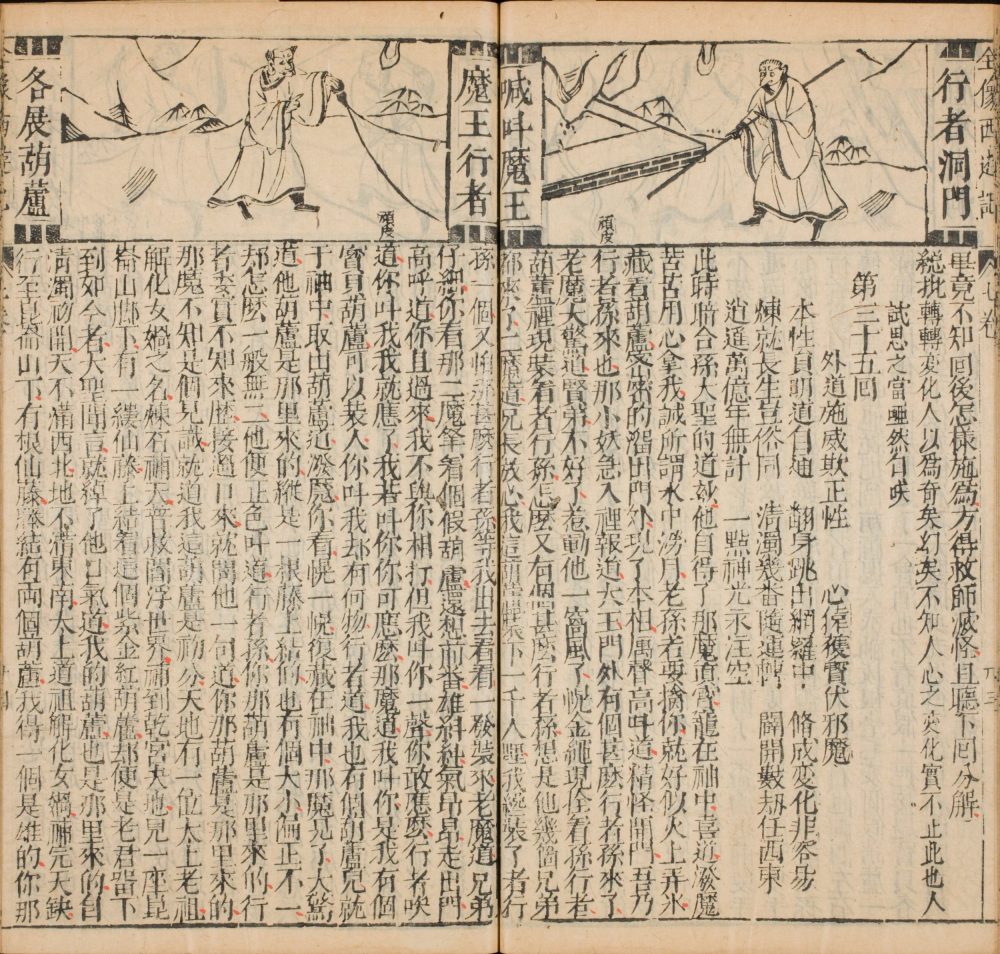 全像西遊記
七卷
行者洞門
喊叫魔王
頑皮
畢竟不知回後怎樣施為方得救師滅怪且聽下回分解
總批轉轉変化人以為奇矣幻矣不知人心之变化實不止此也人
試思之當啞然自咲
第三十五回
外道施威欺正性 心猿獲寶伏邪魔
本性員明道自通 翻身跳出網羅中 脩成変化非容易
煉就長生豈俗同 清濁幾番隨運轉 闢開數刼任西東
逍遙萬億年無計 一點神光永注空
此時暗合孫大聖的道妙他自得了那魔道寶籠在袖中喜道潑魔
苦苦用心拿我誠所謂水中撈月老孫若要擒你就好似火上弄冰
藏着葫蘆密密的溜出門外現了本相厲聲高叫道精怪開門吾乃
行者孫來也那小妖急入裡報道大王門外有個甚麽行者孫來了
老魔大驚道賢弟不好了惹動他一窩風了幌金繩現拴着孫行者
葫蘆裡現裝着者行孫怎麽又有個甚麽行者孫想是他幾個兄弟
都來了二魔道兄長放心我這葫蘆裝下一千人哩我纔裝了者行
魔王行者
各展葫蘆
頑皮
孫一個又怕那甚麽行者孫等我出去看看一發裝來老魔道兄弟
仔細你看那二魔拿着個假葫蘆還想前番雄糾糾氣昂昂走出門
高呼道你且過來我不與你相打但我叫你一聲你敢應麽行者咲
道你叫我我就應了我若叫你你可應麽那魔道我叫你是我有個
寶貝葫蘆可以裝人你叫我却有何物行者道我也有個葫蘆兒就
于袖中取出葫蘆道潑魔你看幌一幌復藏在袖中那魔見了大驚
道他葫蘆是那里來的縱是一根藤上結的也有個大小偏正不一
却怎麽一般無二他便正色叫道行者孫你那葫蘆是那里來的行
者委實不知來歷接過口來就問他一句道你那葫蘆是那里來的
那魔不知是個見識就道我這葫蘆是初分天地有一位太上老祖
觧化女媧之名煉石補天普救閻浮世界補到乾宮夬地見一座崑
崙山脚下有一縷仙藤上結着這個紫金紅葫蘆却便是老君留下
到如今者大聖聞言就綽了他口氣道我的葫蘆也是那里來的自
清濁初開天不滿西北地不滿東南太上道祖觧化女媧補完天缺
行至崑崙山下有根仙藤藤結有両個葫蘆我得一個是雄的你那